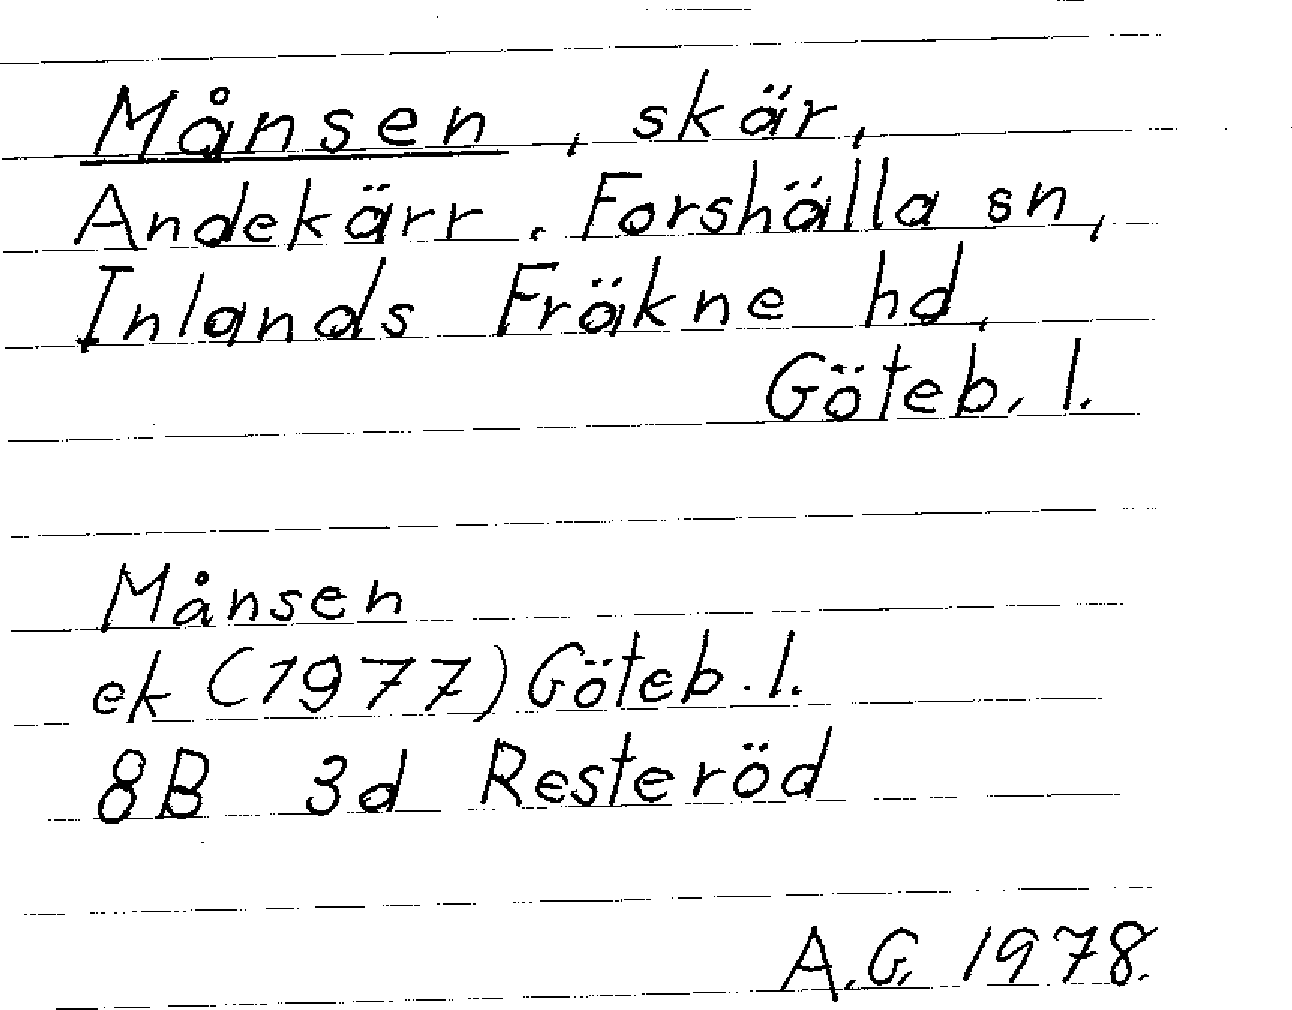 Månsen, skär,
Andekärr. Forshälla sn,
Inlands Fräkne hd,
Göteb. l.
Månsen
ek (1977) Göteb. l.
8B 3d Resteröd
A.G. 1978.